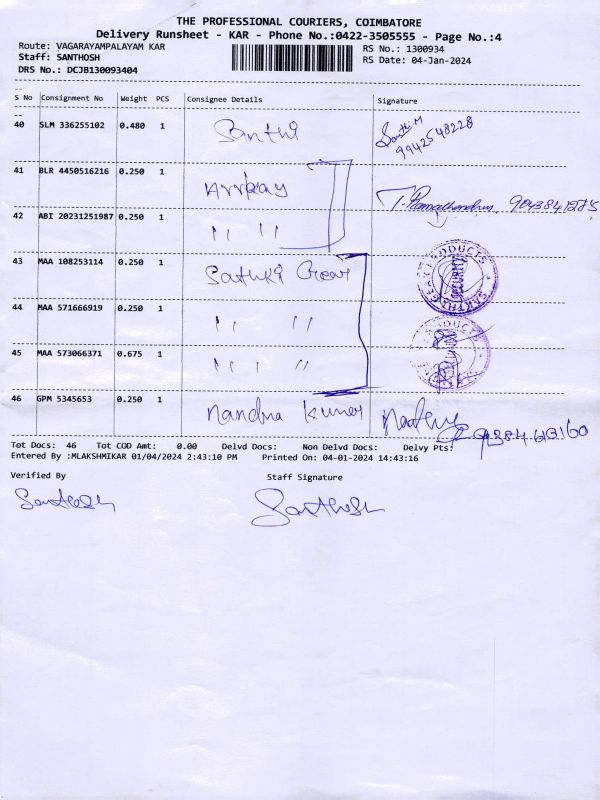 THE PROFESSIONAL COURIERS, COIMBATORE
Delivery Runsheet - KAR - Phone No.:0422-3505555 - Page No.:4
Route: VAGARAYAMPALAYAM KAR
RS No.: 1300934
Staff: SANTHOSH
RS Date: 04-Jan-2024
DRS No.: DCJB130093404
S No Consignment No Weight PCS Consignee Details Signature
40 SLM 336255102 0.480 1 Santhi Santhi.M
9942548228
41 BLR 4450516216 0.250 1 Arrkay
42 ABI 20231251987 0.250 1 " "
43 MAA 108253114 0.250 1 Sathki Gear SAKTHI GEAR PRODUCTS SECURITY
44 MAA 571666919 0.250 1 " "
45 MAA 573066371 0.675 1 " "
46 GPM 5345653 0.250 1 Nandha Kumar
Tot Docs: 46 Tot COD Amt: 0.00 Delvd Docs: Non Delvd Docs: Delvy Pts:
Entered By :MLAKSHMIKAR 01/04/2024 2:43:10 PM Printed On: 04-01-2024 14:43:16
Verified By Staff Signature
Santhosh Santhosh